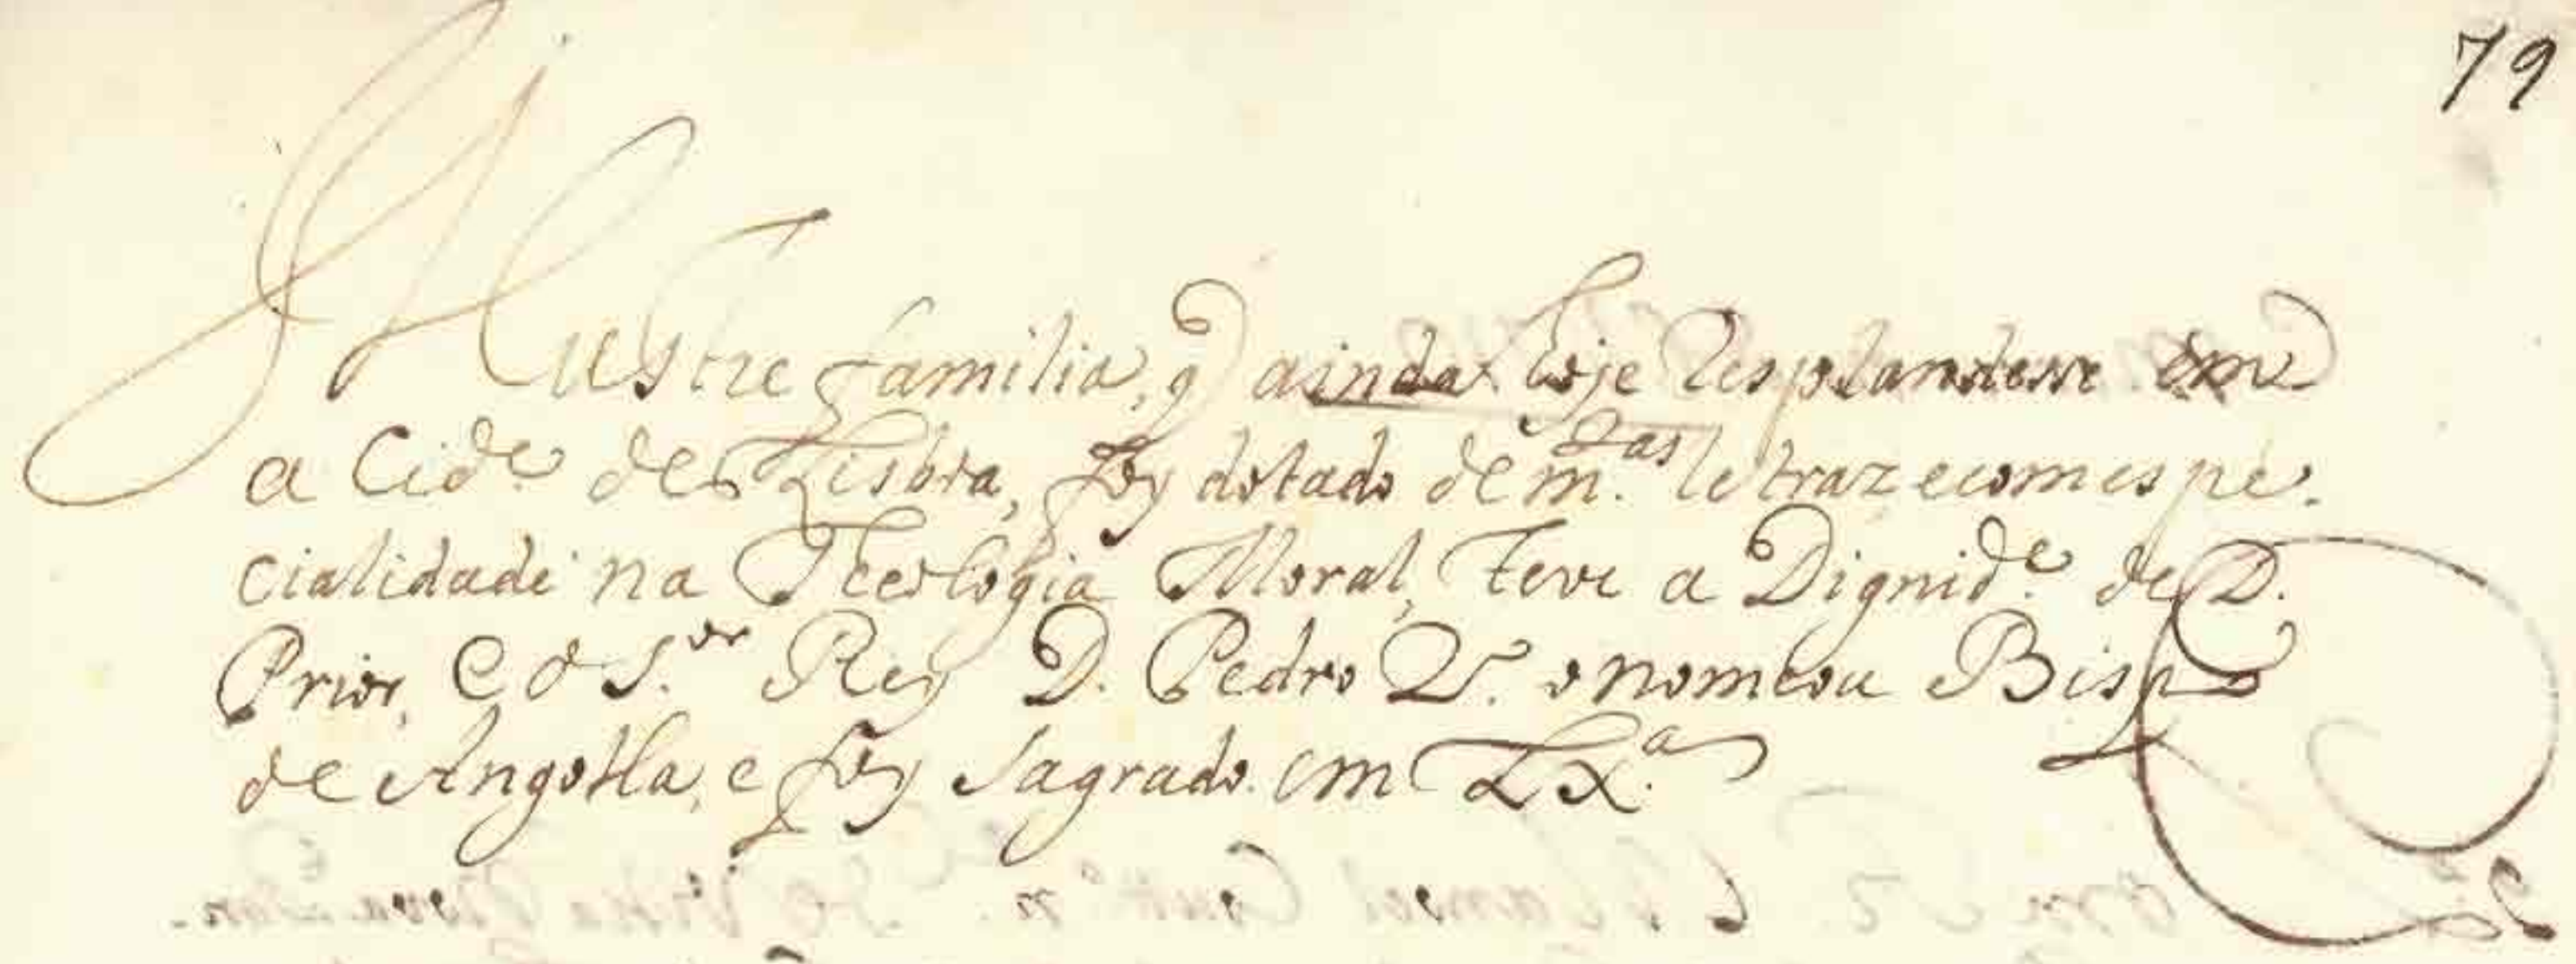 79
Illustre familia, q̃ ainda hoje Resplandese em
a Cid.e de Lisboa, foy dotado de m.tas letraz, e com espe.
cialidade na Theologia Moral, teve a Dignid.e de D.
Prior, e o S.or Rey D. Pedro 2.º o nomeou Bispo
de Angolla, e foy Sagrado em Lx.a